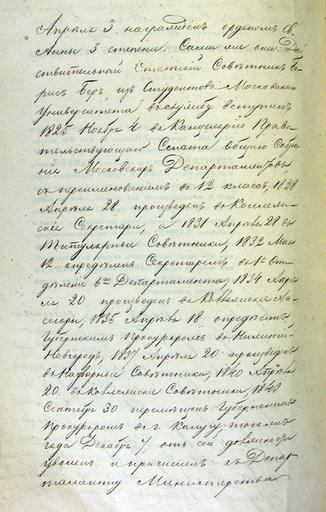 Апреля 3. награжденъ орденомъ Св.
Анны 3 степени. Самъ же онъ Дѣй-
ствительный Статскій Совѣтникъ Бо-
рисъ Беръ изъ Студентовъ Московскаго
Университета въ службу вступилъ
1825 Ноября 4 въ Канцелярію Прави-
тельствующаго Сената общаго Собра-
нія Московскихъ Департаментовъ
съ переименованіемъ въ 12 классъ, 1828
Апрѣля 28 произведенъ въ Коллеж-
скіе Секретари, а 1831 Апрѣля 28 въ
Титулярные Совѣтники, 1832 Мая
12 опредѣленъ Секретаремъ въ 1е От-
дѣленіе 6го Департамента, 1834 Апрѣ-
ля 20 произведенъ въ Коллежскіе Ас-
сесоры, 1835 Апрѣля 18 опредѣленъ
Губернскимъ Прокуроромъ въ Нижній-
Новгородъ, 1837 Апрѣля 20 произведенъ
въ Надворные Совѣтники, 1840 Апрѣля
20 въ Коллежскіе Совѣтники, 1843
Сентября 30 перемѣщенъ Губернскимъ
Прокуроромъ въ г. Калугу, тогожъ
года Декабря 7 отъ сей должности
уволенъ и причисленъ къ Депар-
таменту Министерства